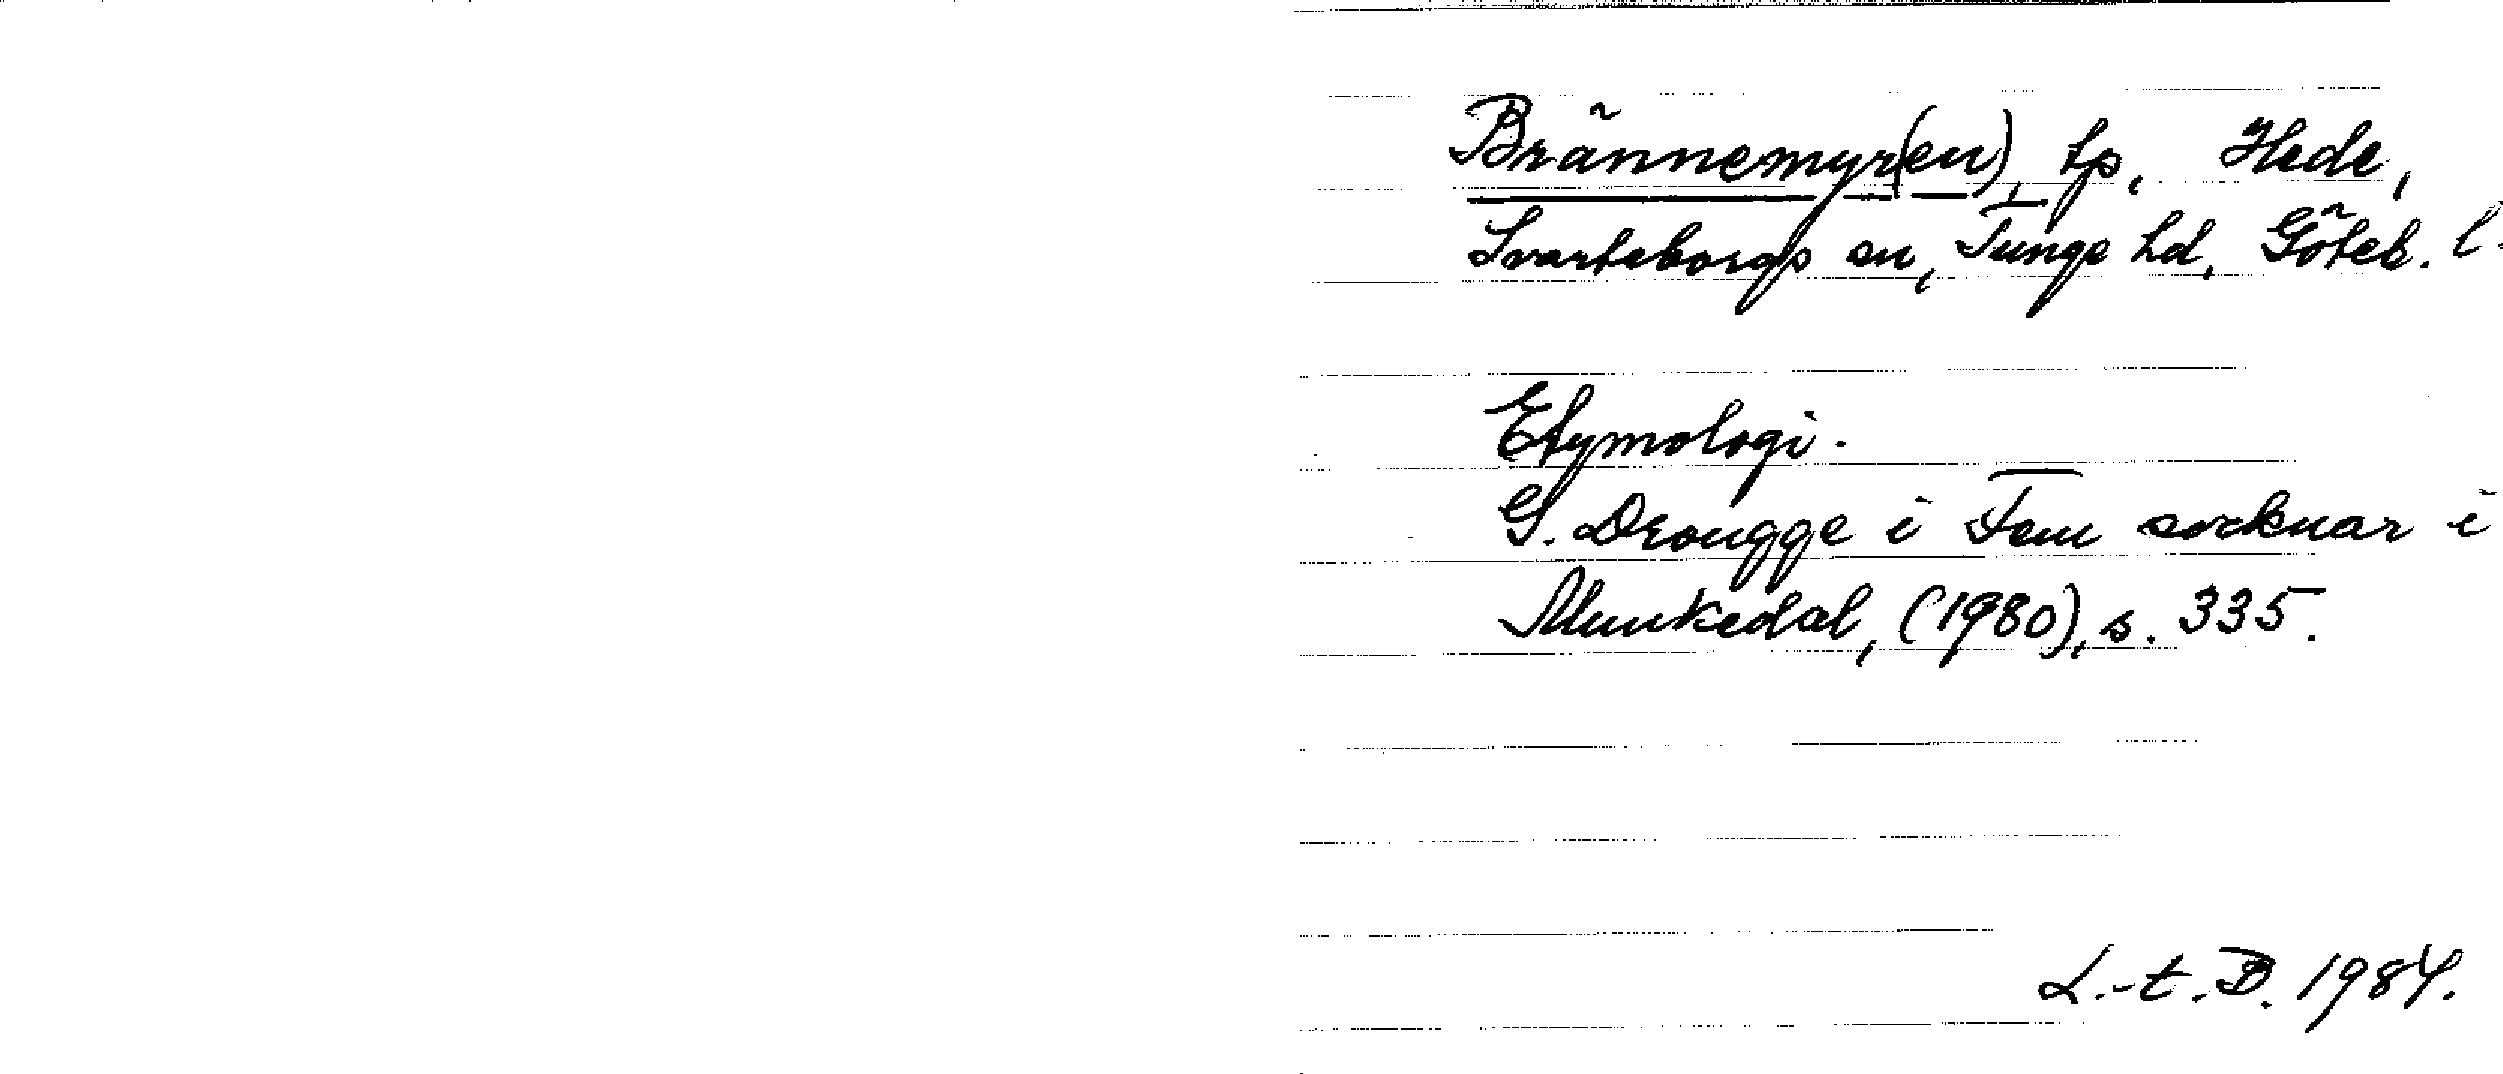 Brännemyr(en), tp, Hede,
Svarteborgs sn, Tunge hd, Göteb. l.
Etymologi.
G. Drougge i Fem socknar i
Munkedal, (1980), s. 335.
L.-t. B. 1984.